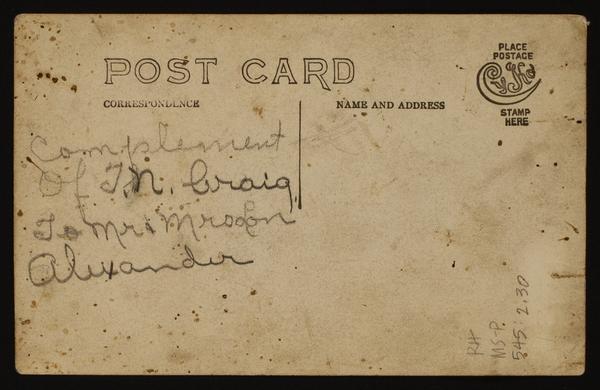 POST CARD
CORRESPONDENCE
NAME AND ADDRESS
PLACE
POSTAGE
CyKo
STAMP
HERE
Complement
Of T.N. Craig
To Mr. Mroson
Alexander
RH
MS-P
545:2.30